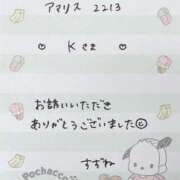 アマリス 2213
♡ Kさま ♡
お誘いいただき
ありがとうございました☺
すずね
Pochacco